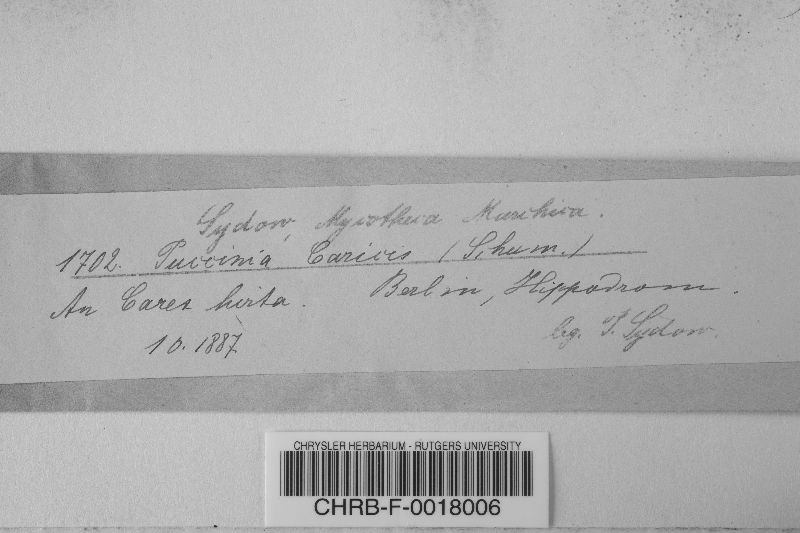 Sydow, Mycotheca Marchica.
1702. Puccinia Caricis (Schum.)
An Carex hirta. Berlin, Hippodrom.
10. 1887. leg. P. Sydow.
CHRYSLER HERBARIUM - RUTGERS UNIVERSITY
CHRB-F-0018006